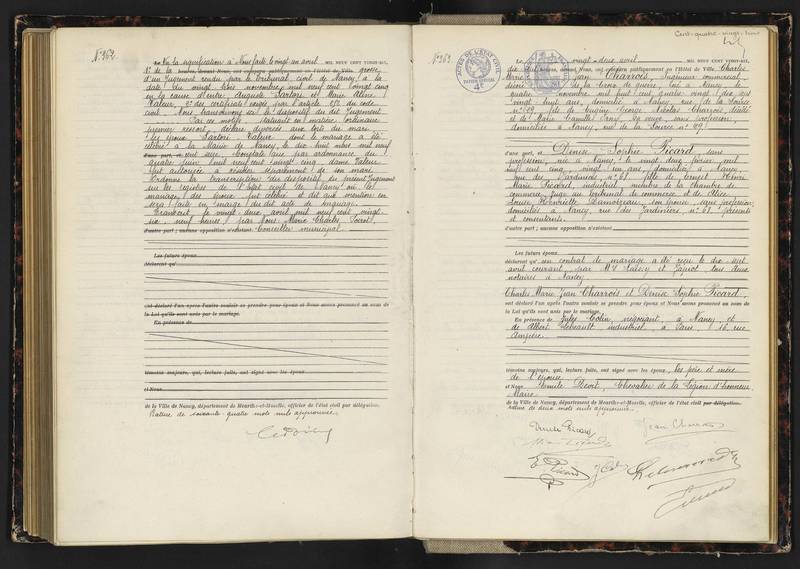 N° 262.
Du la signification à Nous faite le vingt six avril MIL NEUF CENT VINGT-SIX,
grosse
d'un Jugement rendu par le tribunal civil de Nancy à la
date du vingt trois novembre mil neuf cent vingt cinq
en la cause d'entre Auguste Sartori et Marie Aline
Valeur, 2° des certificats exigés par l'article 252 du code
civil, Nous transcrivons ici le dispositif du dit Jugement
Par ces motifs statuant en matière ordinaire
premier ressort, déclare divorcés aux torts du mari
les époux Sartori Valeur dont le mariage a été
célébré à la Mairie de Nancy, le dix huit mil neuf
cent
quatre juin mil neuf cent vingt cinq, dame Valeur
fut autorisée à résider séparément de son mari
Ordonne la transcription du dispositif du présent Jugement
sur les registres de l'état civil de Nancy où le
mariage des époux fut célébré et dit que mention en
sera faite en marge du dit acte de mariage.
Transcrit le vingt deux avril mil neuf cent vingt
six, neuf heures par Nous Marie Charles Poirot,
d'autre part; aucune opposition n'existant. Conseiller municipal
Les futurs époux
déclarent qu'
ont déclaré l'un après l'autre vouloir se prendre pour époux et Nous avons prononcé au nom de
la Loi qu'ils sont unis par le mariage.
En présence de
témoins majeurs, qui, lecture faite, ont signé avec les époux
et Nous
de la Ville de Nancy, département de Meurthe-et-Moselle, officier de l'état civil par délégation.
Rature de soixante quatre mots nuls approuvée.
Cent-quatre-vingt-trois
N° 263
Le vingt-deux avril MIL NEUF CENT VINGT-SIX,
dix heures, devant Nous, ont comparu publiquement en l'Hôtel de Ville, Charles
Marie Jean Charrois, Ingénieur commercial,
décoré de la Croix de guerre, né à Nancy, le
quatre novembre mil huit cent quatre vingt dix sept
vingt huit ans, domicilié à Nancy, rue de la Source
n° 29, fils de Eugène George Nicolas Charrois décédé
et de Marie Camille sa veuve, sans profession,
domiciliée à Nancy, rue de la Source n° 29
d'une part, et Denise Sophie Picard, sans
profession, née à Nancy, le vingt deux février mil
neuf cent cinq, vingt un ans, domiciliée à Nancy,
rue des Jardiniers n° 61 fille de Ernest Henri
Marie Picard, industriel, membre de la chambre de
commerce, Juge au tribunal de commerce, et de Alice
Louise Henriette Damoiseau, son épouse, sans profession,
domiciliés à Nancy, rue des Jardiniers n° 61. présents
et consentants.
d'autre part; aucune opposition n'existant
Les futurs époux
déclarent qu' un contrat de mariage a été reçu le dix-sept
avril courant, par Mes et tous deux
notaires à Nancy.
Charles Marie Jean Charrois et Denise Sophie Picard,
ont déclaré l'un après l'autre vouloir se prendre pour époux et Nous avons prononcé au nom de
la Loi qu'ils sont unis par le mariage.
En présence de Jules Colin, négociant, à Nancy, et
de Albert industriel, à Paris 16, rue
Ampère.
témoins majeurs, qui, lecture faite, ont signé avec les époux, les père et mère
de l'épouse
et Nous Emile Chevalier de la Légion d'honneur
Maire
de la Ville de Nancy, département de Meurthe-et-Moselle, officier de l'état civil par délégation.
Rature de deux mots nuls approuvée.
Jean Charrois
E. Picard